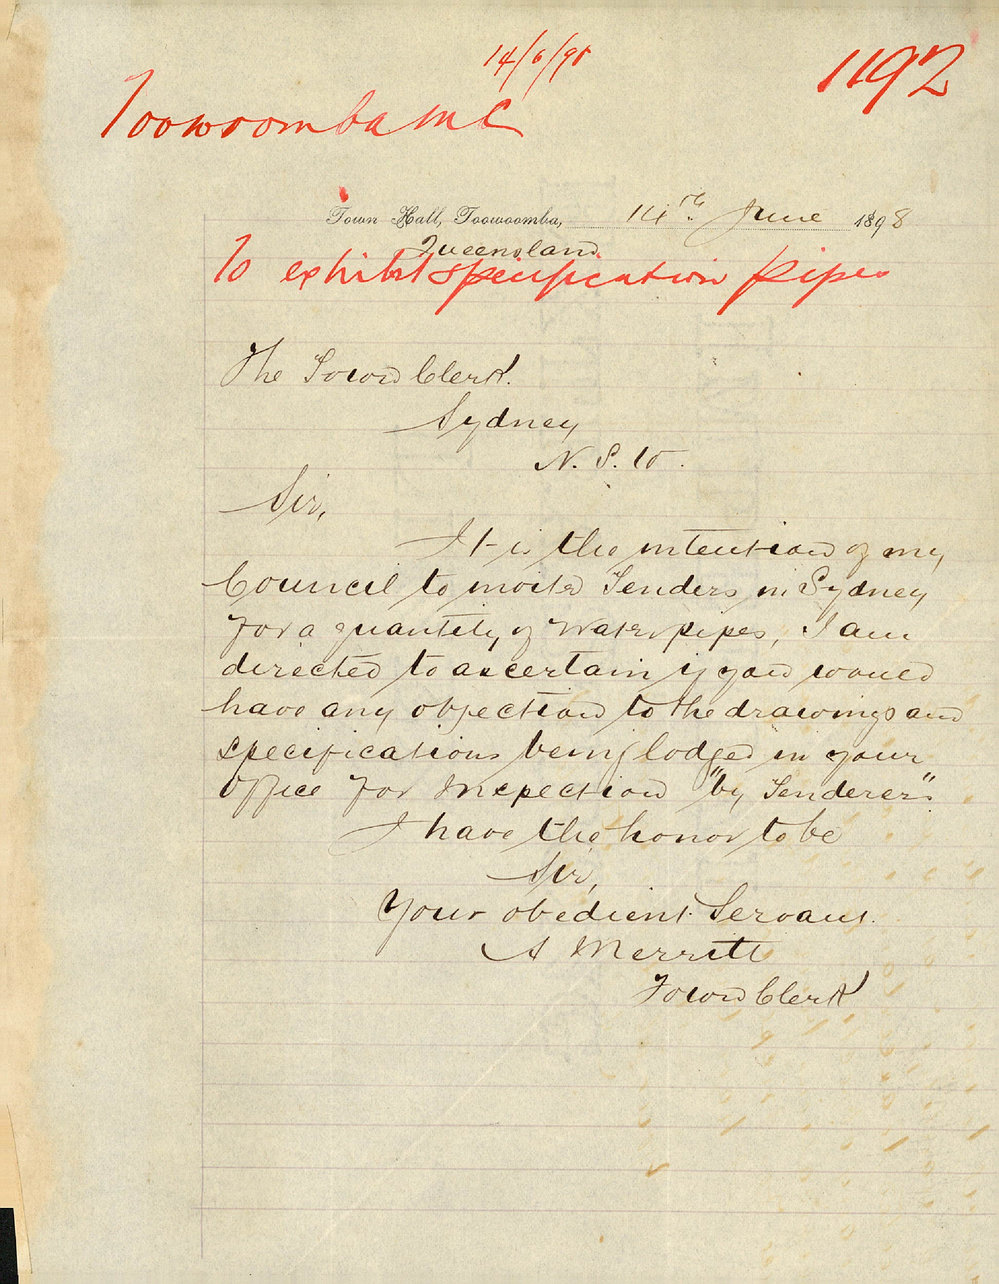 14/6/98
1192
Toowoomba M C
Town Hall, Toowoomba, 14th June 1898
Queensland
To exhibit specification pipes
The Town Clerk.
Sydney
N. S. W.
Sir,
It is the intention of my
Council to invite Tenders in Sydney
for a quantity of Water pipes, I am
directed to ascertain if you would
have any objection to the drawings and
specifications being lodged in your
Office for Inspection "by Tenderers"
I have the honor to be
Sir,
Your obedient Servant.
A Merritt
Town Clerk